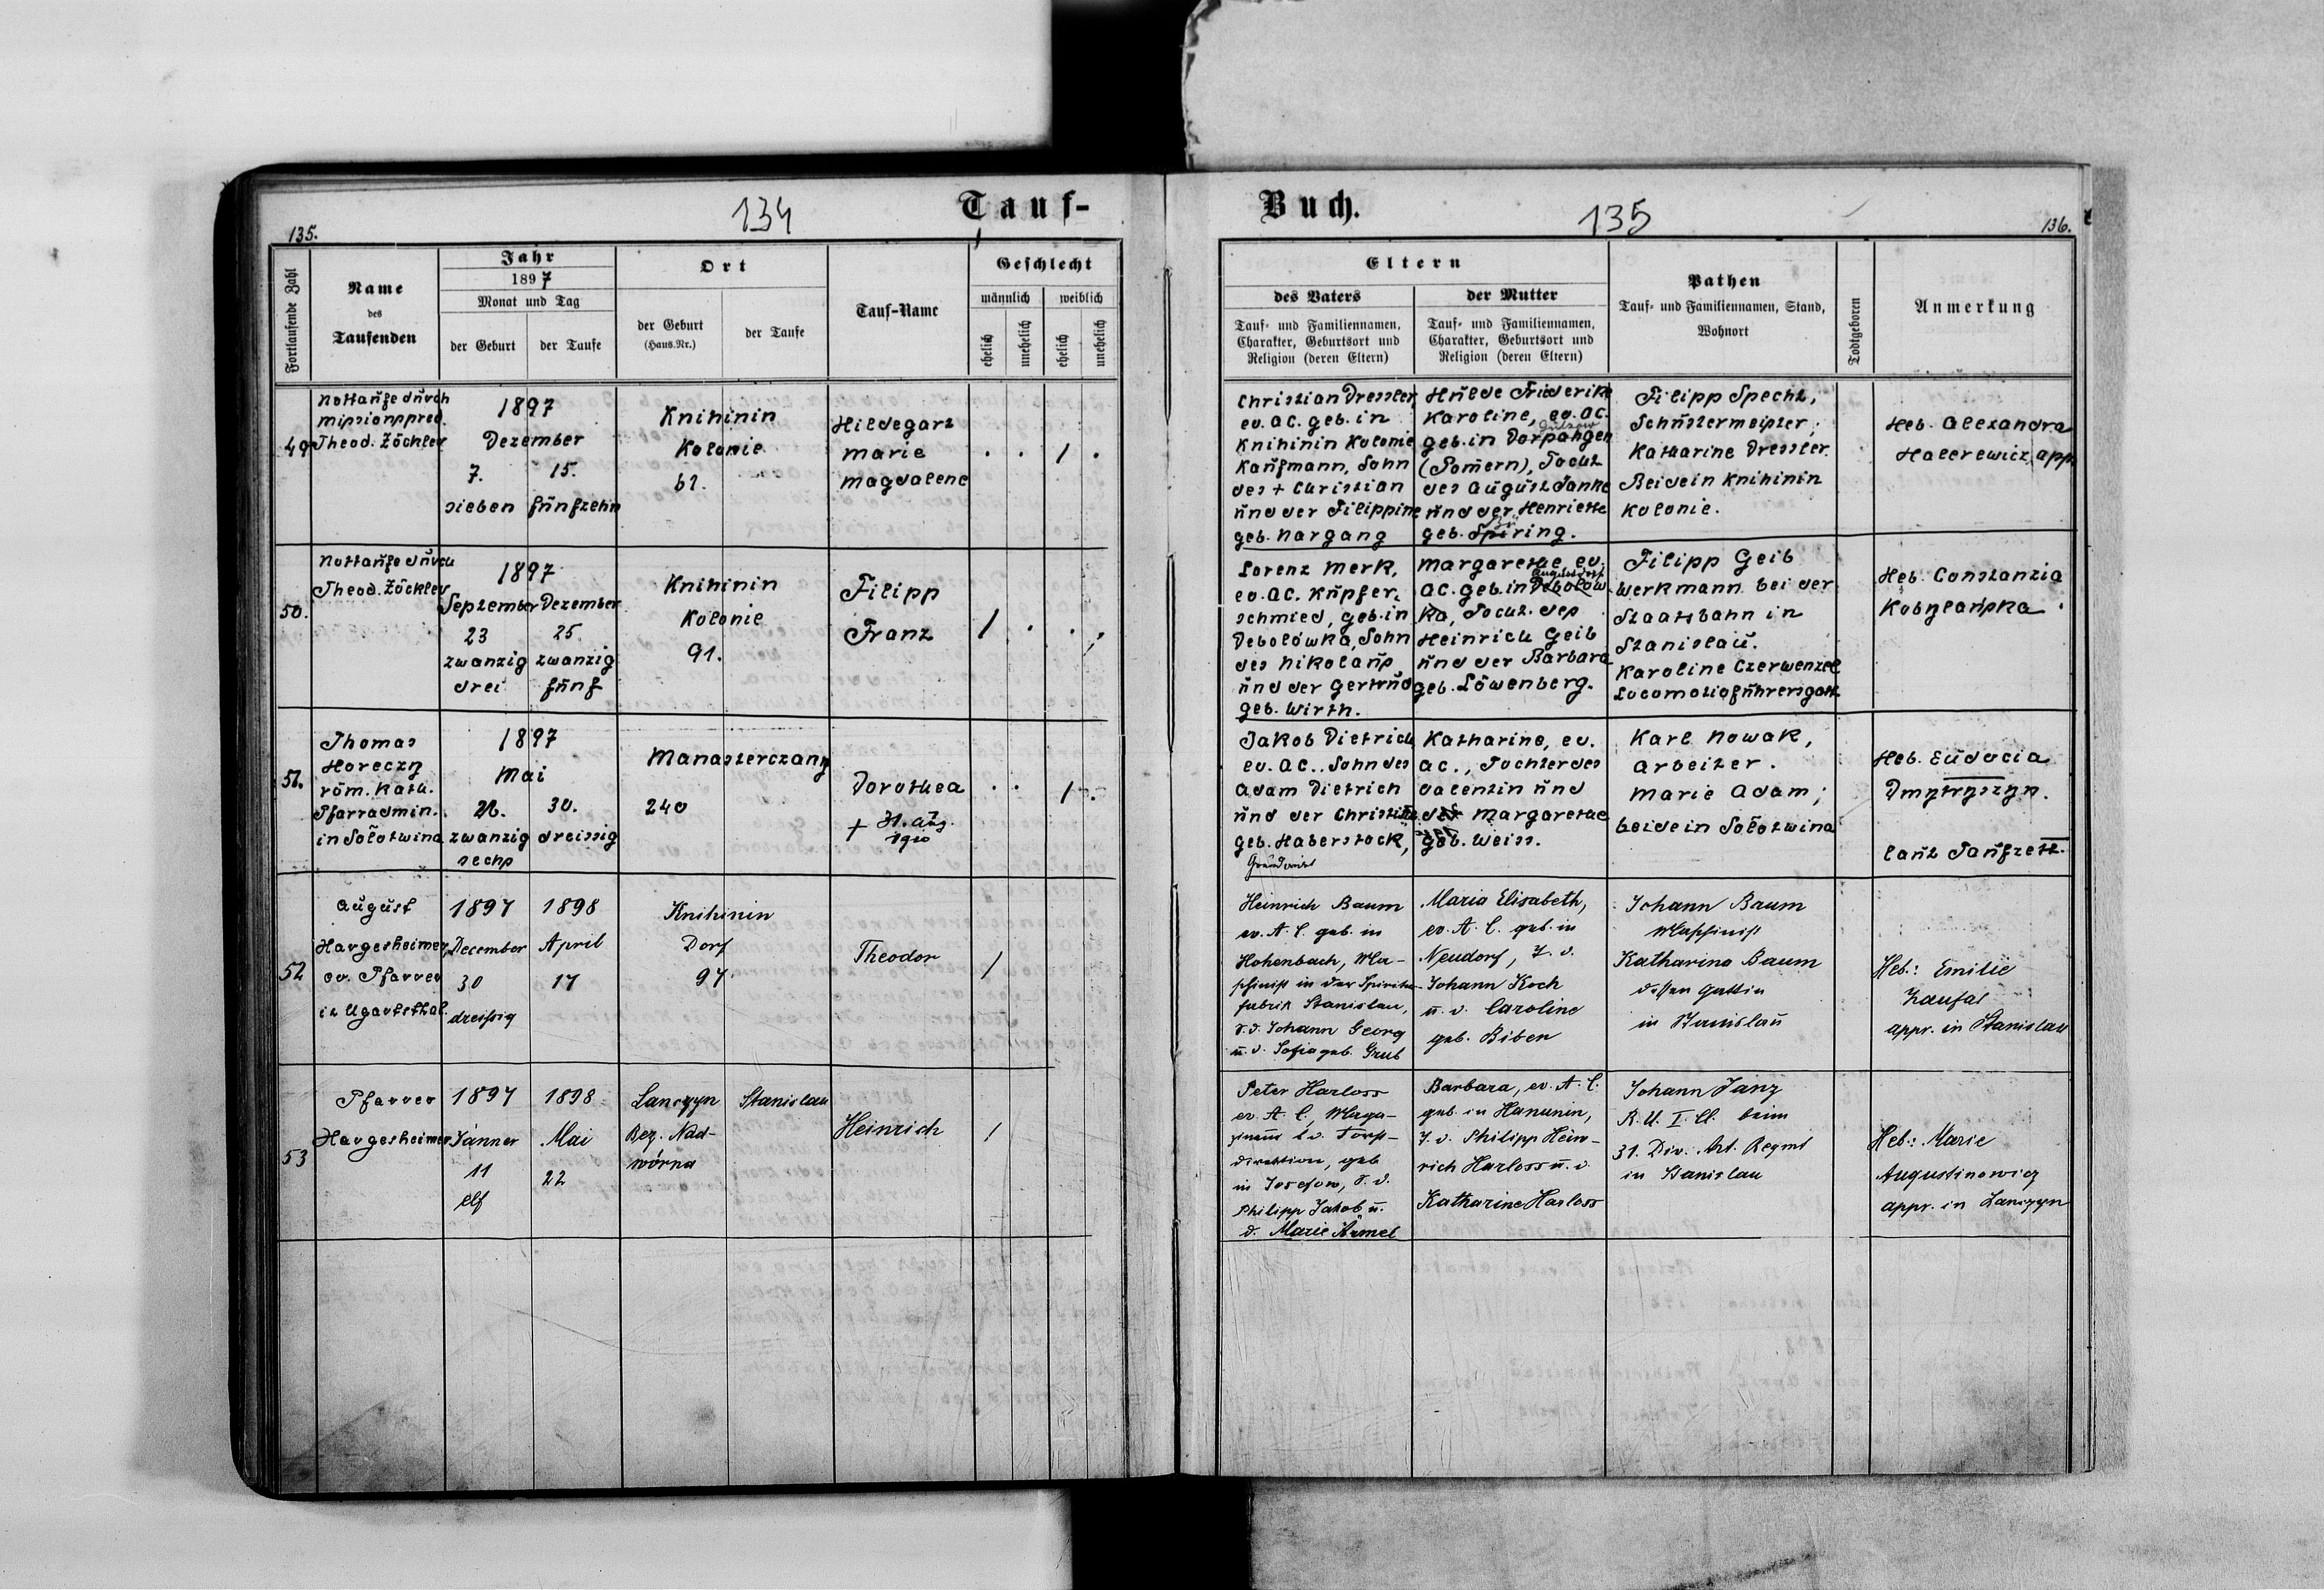 134
Tauf-
135.
Fortlaufende Zahl
Name
des
Taufenden
Jahr
1897
Monat und Tag
der Geburt
der Taufe
Ort
der Geburt
(Haus-Nr.)
der Taufe
Tauf-Name
Geschlecht
männlich
weiblich
ehelich
unehelich
ehelich
unehelich
49
Nottaufe durch
Missionspred.
Theod. Zöckler
1897
Dezember
7. 15.
sieben fünfzehn
Knihinin
Kolonie
62.
Hildegart
Marie
Magdalene
. . 1 .
50.
Nottaufe durch
Theod. Zöckler
1897
September Dezember
23 25.
zwanzig zwanzig
drei fünf
Knihinin
Kolonie
91.
Filipp
Franz
1 . . .
51.
Thomas
Horeczy
röm. kath.
Pfarradmin.
in Sołotwina
1897
Mai
26. 30.
zwanzig dreissig
sechs
Manasterczany
240
Dorothea
+ 31. Aug.
1910
. . 1 .
52
August
Hargesheimer,
ev. Pfarrer
in Ugartsthal.
1897 1898
December April
30 17
dreißig
Knihinin
Dorf
97.
Theodor
1
53
Pfarrer
Hargesheimer
1897 1898
Jänner Mai
11 22
elf
Lanczyn
Bez. Nad-
wórna
Stanislau
Heinrich
1
Buch.
135
136.
Eltern
des Vaters
Tauf- und Familiennamen,
Charakter, Geburtsort und
Religion (deren Eltern)
der Mutter
Tauf- und Familiennamen,
Charakter, Geburtsort und
Religion (deren Eltern)
Pathen
Tauf- und Familiennamen, Stand,
Wohnort
Todtgeboren
Anmerkung
Christian Dressler,
ev. AC. geb. in
Knihinin Kolonie
Kaufmann, Sohn
des + Christian
und der Filippine
geb. Nargang
Hulde Friderike
Karoline, ev. AC.
geb. in
(Pomern), Tocht
des August Janke
und der Henriette
geb.
Filipp Specht,
Schustermeister;
Katharine Dressler.
Beide in Knihinin
Kolonie.
Heb. Alexandra
Halerewicz, app
Lorenz Merk,
ev. AC. Kupfer-
schmied, geb. in
Debolówka, Sohn
des Nikolaus
und der Gertrud
geb. Wirth.
Margarethe ev.
AC. geb. in Debolow
Augustdorf
ka, Tocht. des
Heinrich Geib
und der Barbara
geb. Löwenberg.
Filipp Geib
Werkmann bei der
Staatsbahn in
Stanislau.
Karoline Czerwenzel
Locomotivführersgatt.
Heb. Constanzia
Kobylańska.
Jakob Dietrich
ev. AC.. Sohn des
Adam Dietrich
und der Christine
geb. Haberstock,
Grundwirt
Katharine, ev.
AC., Tochter des
Valentin und
der Margarethe
geb. Weiss.
Karl Nowak,
Arbeiter.
Marie Adam;
beide in Sołotwina
Heb. Eudocia
Dmytryszyn.
laut Taufzett.
Heinrich Baum
ev. A. C. geb. in
Hohenbach, Ma-
schinist in der Spiritus-
fabrik Stanislau,
S. d. Johann Georg
u. d. Sofia geb. Grub
Maria Elisabeth,
ev. A. C. geb. in
Neudorf, T. d.
Johann Koch
u. d. Caroline
geb. Biben
Johann Baum
Maschinist
Katharina Baum
dessen Gattin
in Stanislau
Heb.: Emilie
Zaufal
appr. in Stanislau
Peter Harloss
ev. A. C.
direktion, geb
in Josefow, S. d.
Philipp Jakob u.
d. Marie Armel
Barbara, ev. A. C.
geb. in Hanunin,
T. d. Philipp Hein-
rich Harloss u. d.
Katharine Harloss
Johann Janz
K. U. I. Cl. beim
31. Div. Art. Regmt
in Stanislau
Heb.: Marie
Augustinowicz
appr. in Lanczyn